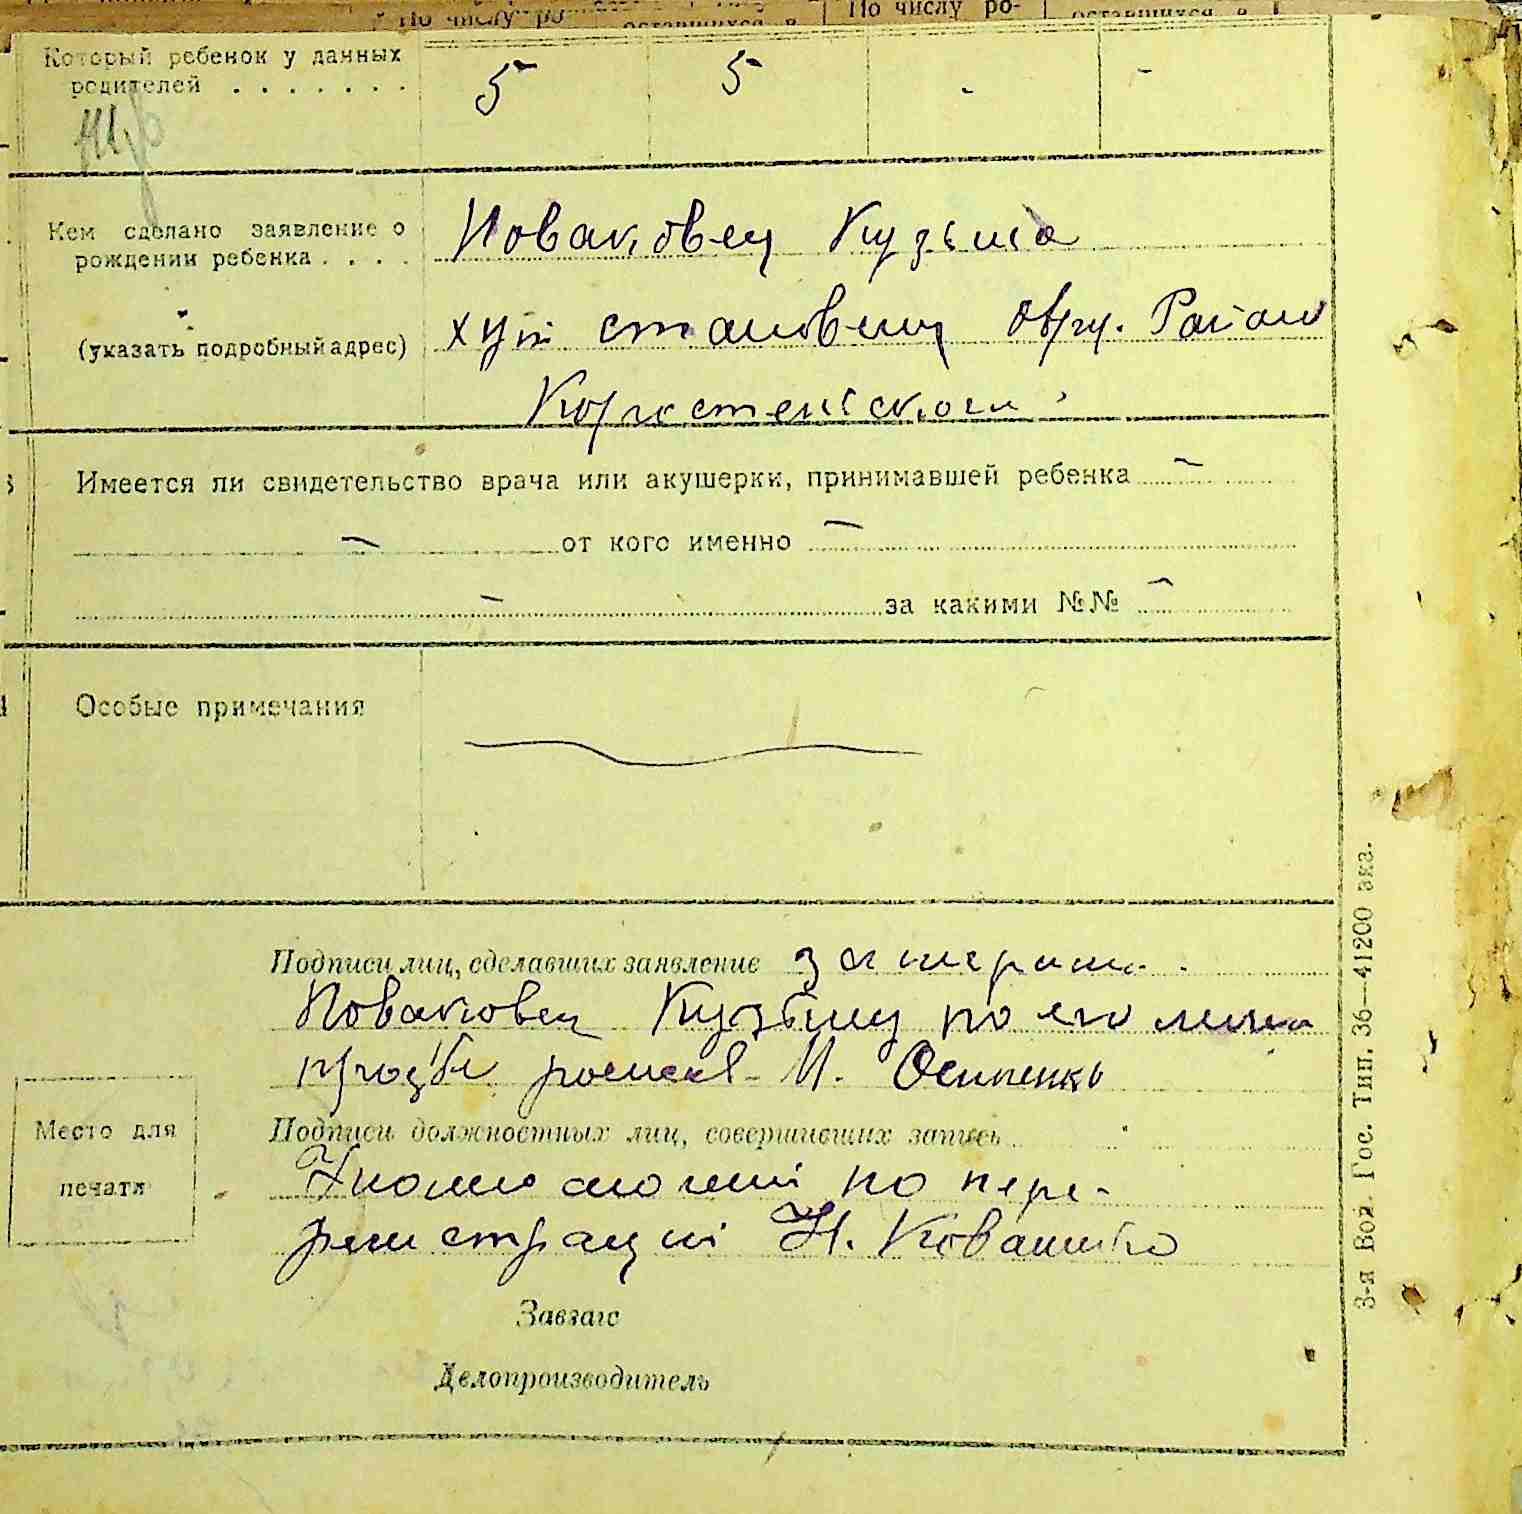 По числу ро- По числу ро- оставшихся в
Который ребенок у данных
родителей . . . . . . . 5 5 - -
Кем сделано заявление о
рождении ребенка . . . . Новаковец Кузьма
(указать подробный адрес) хут становищ овруч. Район
Коростенского
Имеется ли свидетельство врача или акушерки, принимавшей ребенка –
– от кого именно –
– за какими №№ –
Особые примечания
Подписи лиц, сделавших заявление за неграмм.
Новаковец Кузьму по его личн
прозьбе роспис. И. Осипенко
Подписи должностных лиц, совершивших запись
Уполномочений по пере-
регистрації Н. Ковашко
Место для
печати
Завзагс
Делопроизводитель
3-я Вой. Гос. Тип. 36—41200 экз.